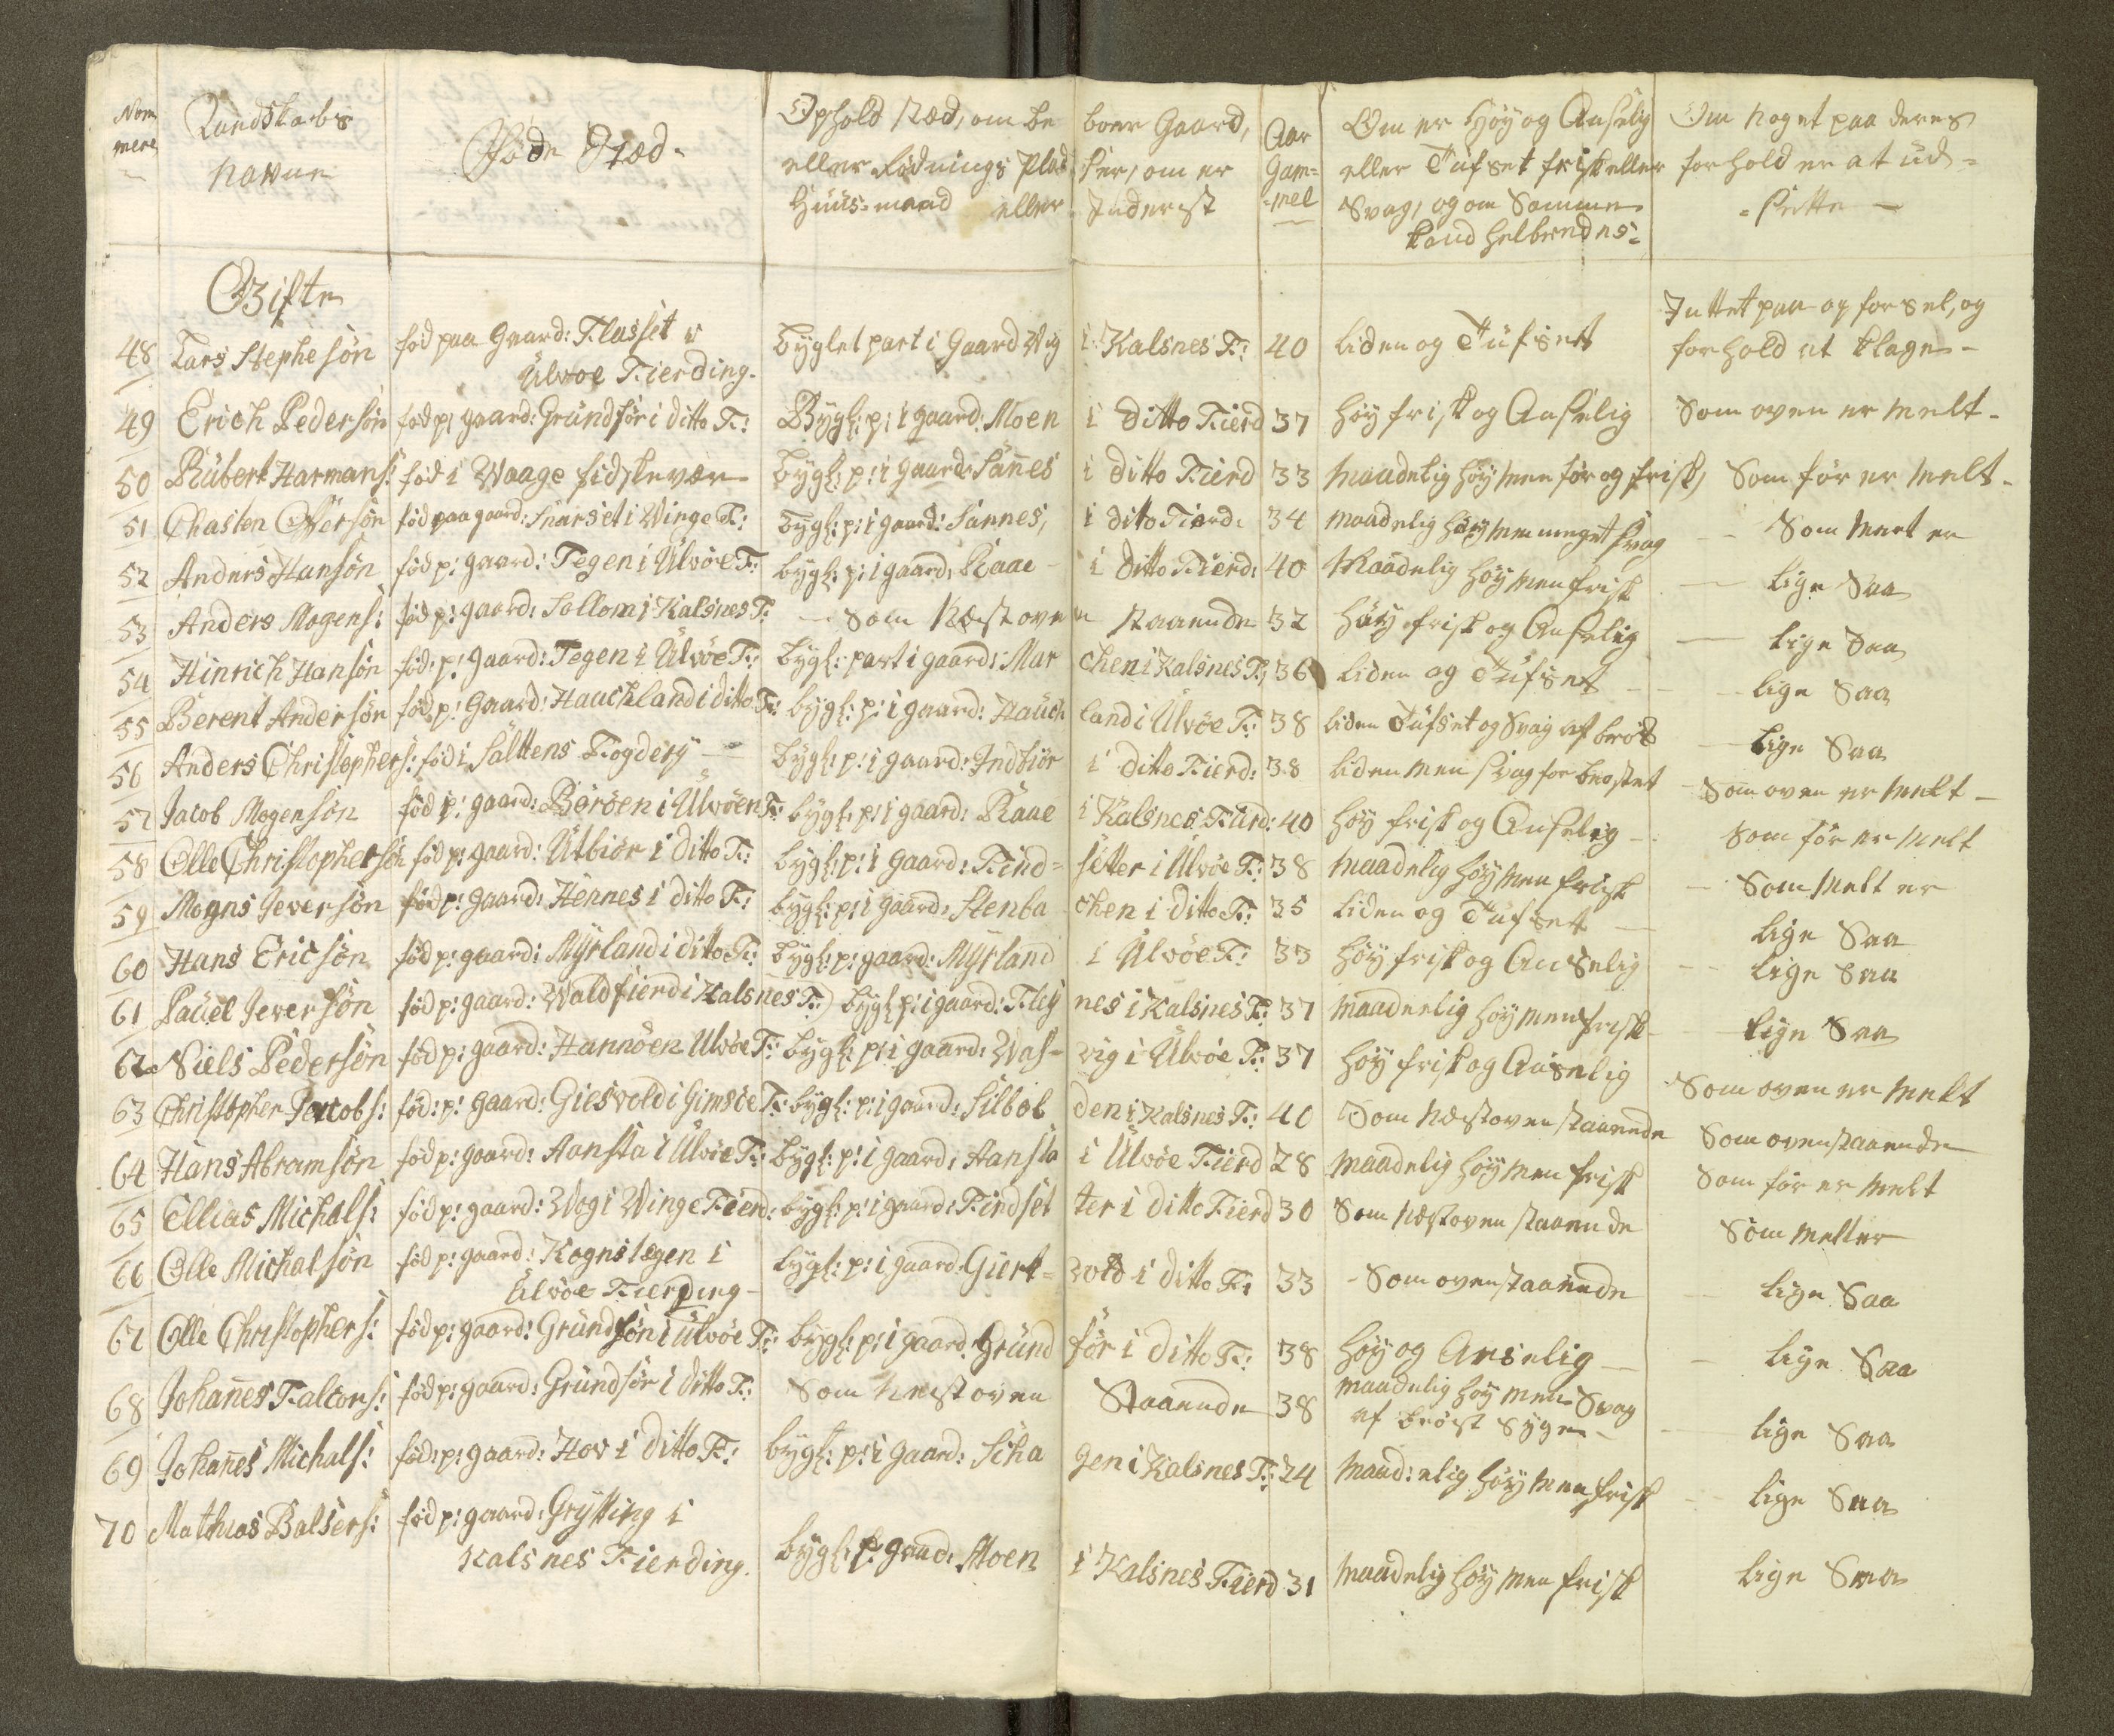 Nom
mere
Landskabs
Navne
Föde Stæd.
Ophold stæd, om be boer Gaard, eller Rödnings Pladser, om er
Huus-mand eller Inderst
Aar
Gam=
=mel
Om er höy og Anselig
eller Tufset frisk eller
Svag, og om Samme
kand helbredes
Om noget paa deres
forhold er at ud=
=sette
Gifte
48 Lars Stephesön föd paa Gaard: Flasset i Ulvoe Fierding. byglet part i Gaard Wig i Kalsnes F: 40 liden og Tufset Intet paa opforsel, og forhold at klage
49 Erich Pedersön föd p: gaard: Grundför i ditto F: Bygl: p: i gaard: Moen i ditto Fierd 37 höy frisk og Anselig Som oven er melt
50 Rubert Harmans: föd i Waage fidskevær bygl: p: i gaard: Sannes i ditto Fierd 33 maadelig höy men för og frisk Som för er melt
51 Chasten Oversön föd paa gaard: Snarset i Winge F: bygl: p: i gaard: Sannes, i dito Fierd: 34 maadelig höy men meget svag Som melt er
52 Anders Hansön föd p: gaard: Tegen i Ulvöe F: bygl: p: i gaard: Raae i ditto Fierd: 40 Maadelig höy men frisk lige Saa
53 Anders Mogens: föd p: gaard: Sollom i Kalsnes F: Som Næst oven staaende 32 höy frisk og Anselig lige Saa
54 Hinrich Hansön föd: p: gaard: Tegen i Ulvöe F: bygl: part i gaard: Marchen i Kalsnes F: 36 liden og Tufset lige Saa
55 Berent Andersön föd p: Gaard: Hauchland i ditto F: bygl: p: i gaard: Hauchland i Ulvöe F: 38 liden Tufset og Svag af bröst lige Saa
56 Anders Christophers: föd i Salttens Fogdery bygl: p: i gaard: Indbiör i ditto Fierd: 38 liden men svag for bröstet Som oven er melt
57 Jacob Mogensön föd p: gaard: Beröen i Ulvöen F: bygl: p: i gaard: Raae i Kalsnes Fierd: 40 höy frisk og Anselig Som för er melt
58 Olle Christophersön föd p: gaard: Utbiör i ditto F: bygl: p: i gaard: Find=setter i Ulvöe F: 38 maadelig höy men frisk Som Melt er
59 Mogns Iversön föd p: gaard: Hennes i ditto F: bygl: p: i gaard: Stenbachen i ditto F: 35 liden og Tufset lige Saa
60 Hans Ericsön föd p: gaard: Myrland i ditto F: bygl: p: gaard: Myrland i Ulvöe F: 33 höy frisk og Anselig lige Saa
61 Pauel Jeversön föd p: gaard: Waldfierd i Kalsnes F: bygl: p: i gaard: Fleynes i Kalsnes F: 37 maadelig höy men frisk lige Saa
62 Niels Pedersön föd p: gaard: Hannöen Ulvöe F: bygl: p: i gaard: Wasvig i Ulvöe F: 37 höy frisk og Anselig Som oven er melt
63 Christopher Jacobs: föd: p: gaard: Giesvold i Gimsöe F: bygl: p: i gaard: Silbolden i Kalsnes F: 40 Som Næst oven staaende Som ovenstaaende
64 Hans Abramsön föd p: gaard: Aansta i Ulvöe F: bygl: p: i gaard: Aansta i Ulvöe Fierd 28 maadelig höy men frisk Som för er melt
65 Ellias Michals: föd p: gaard: Wog i Winge Fierd: bygl: p: i gaard: Findsetter i ditto Fierd 30 Som Næst oven staaende Som melt er
66 Olle Michalsön föd p: gaard: Kognslægen i Ulvöe Fierding bygl: p: i gaard: Giert=vold i ditto F: 33 Som ovenstaaende lige Saa
67 Olle Christophers: föd p: gaard: Grundför i Ulvöe F: bygl: p: i gaard: Grundför i ditto F: 38 höy og Anselig lige Saa
68 Johañes Faltors: föd p: gaard: Grundför i ditto F: Som Næst oven Staaende 38 maadelig höy men Svag af bröst Syge lige Saa
69 Johañes Michals: föd: p: gaard: Hov i ditto F: bygl: p: i gaard: Schagen i Kalsnes F: 24 maadelig höy men frisk lige Saa
70 Mathias Balsers: föd p: gaard: Grytting i Kalsnes Fierding. bygl: p: gaad: Moen i Kalsnes Fierd 31 maadelig höy men frisk lige Saa